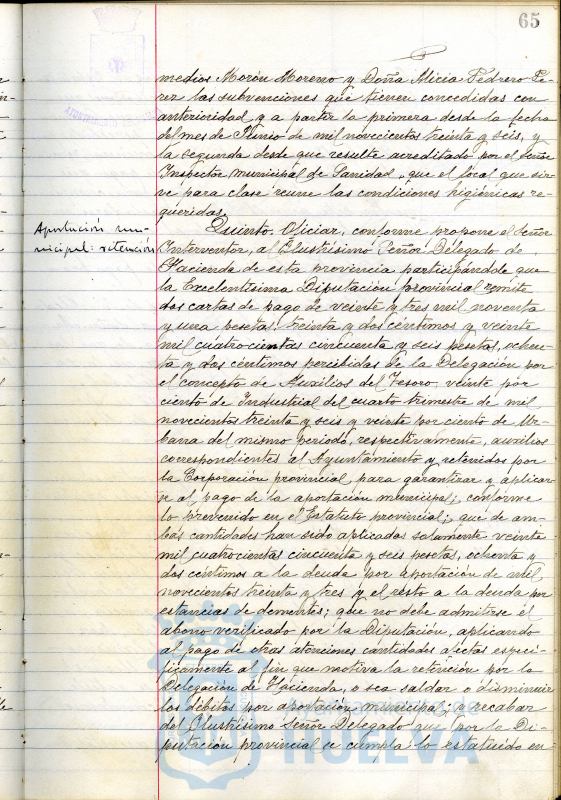 65
medios Morón Moreno y Doña Alicia Pedrero Pe-
rez las subvenciones que tienen concedidas con
anterioridad y a partir la primera desde la fecha
del mes de Junio de mil novecientos treinta y seis, y
la segunda desde que resulte acreditado por el Señor
Inspector municipal de Sanidad, que el local que sir-
ve para clase reune las condiciones higiénicas re-
queridas.
Aportación mu-
nicipal: retención
Quinto. Oficiar, conforme propone el Señor
Interventor, al Ilustrísimo Señor Delegado de
Hacienda de esta provincia participándole que
la Excelentísima Diputación provincial remite
dos cartas de pago de veinte y tres mil noventa
y una pesetas, treinta y dos céntimos y veinte
mil cuatrocientas cincuenta y seis pesetas, ochen-
ta y dos céntimos percibidas de la Delegación por
el concepto de Auxilios del Tesoro veinte por
ciento de Industrial del cuarto trimestre de mil
novecientos treinta y seis y veinte por ciento de Ur-
bana del mismo periodo, respectivamente, auxilios
correspondientes al Ayuntamiento y retenidos por
la Corporación provincial para garantizar y aplicar-
se al pago de la aportación municipal, conforme
lo prevenido en el Estatuto provincial; que de am-
bas cantidades han sido aplicados solamente veinte
mil cuatrocientas cincuenta y seis pesetas, ochenta y
dos céntimos a la deuda por aportación de mil
novecientos treinta y tres y el resto a la deuda por
estancias de dementes; que no debe admitirse el
abono verificado por la Diputación, aplicando
al pago de otras atenciones cantidades afectas especí-
ficamente al fin que motiva la retención por la
Delegación de Hacienda, o sea saldar o disminuir
los débitos por aportación municipal, y recabar
del Ilustrísimo Señor Delegado que por la Di-
putación provincial se cumpla lo estatuído en-
HUELVA